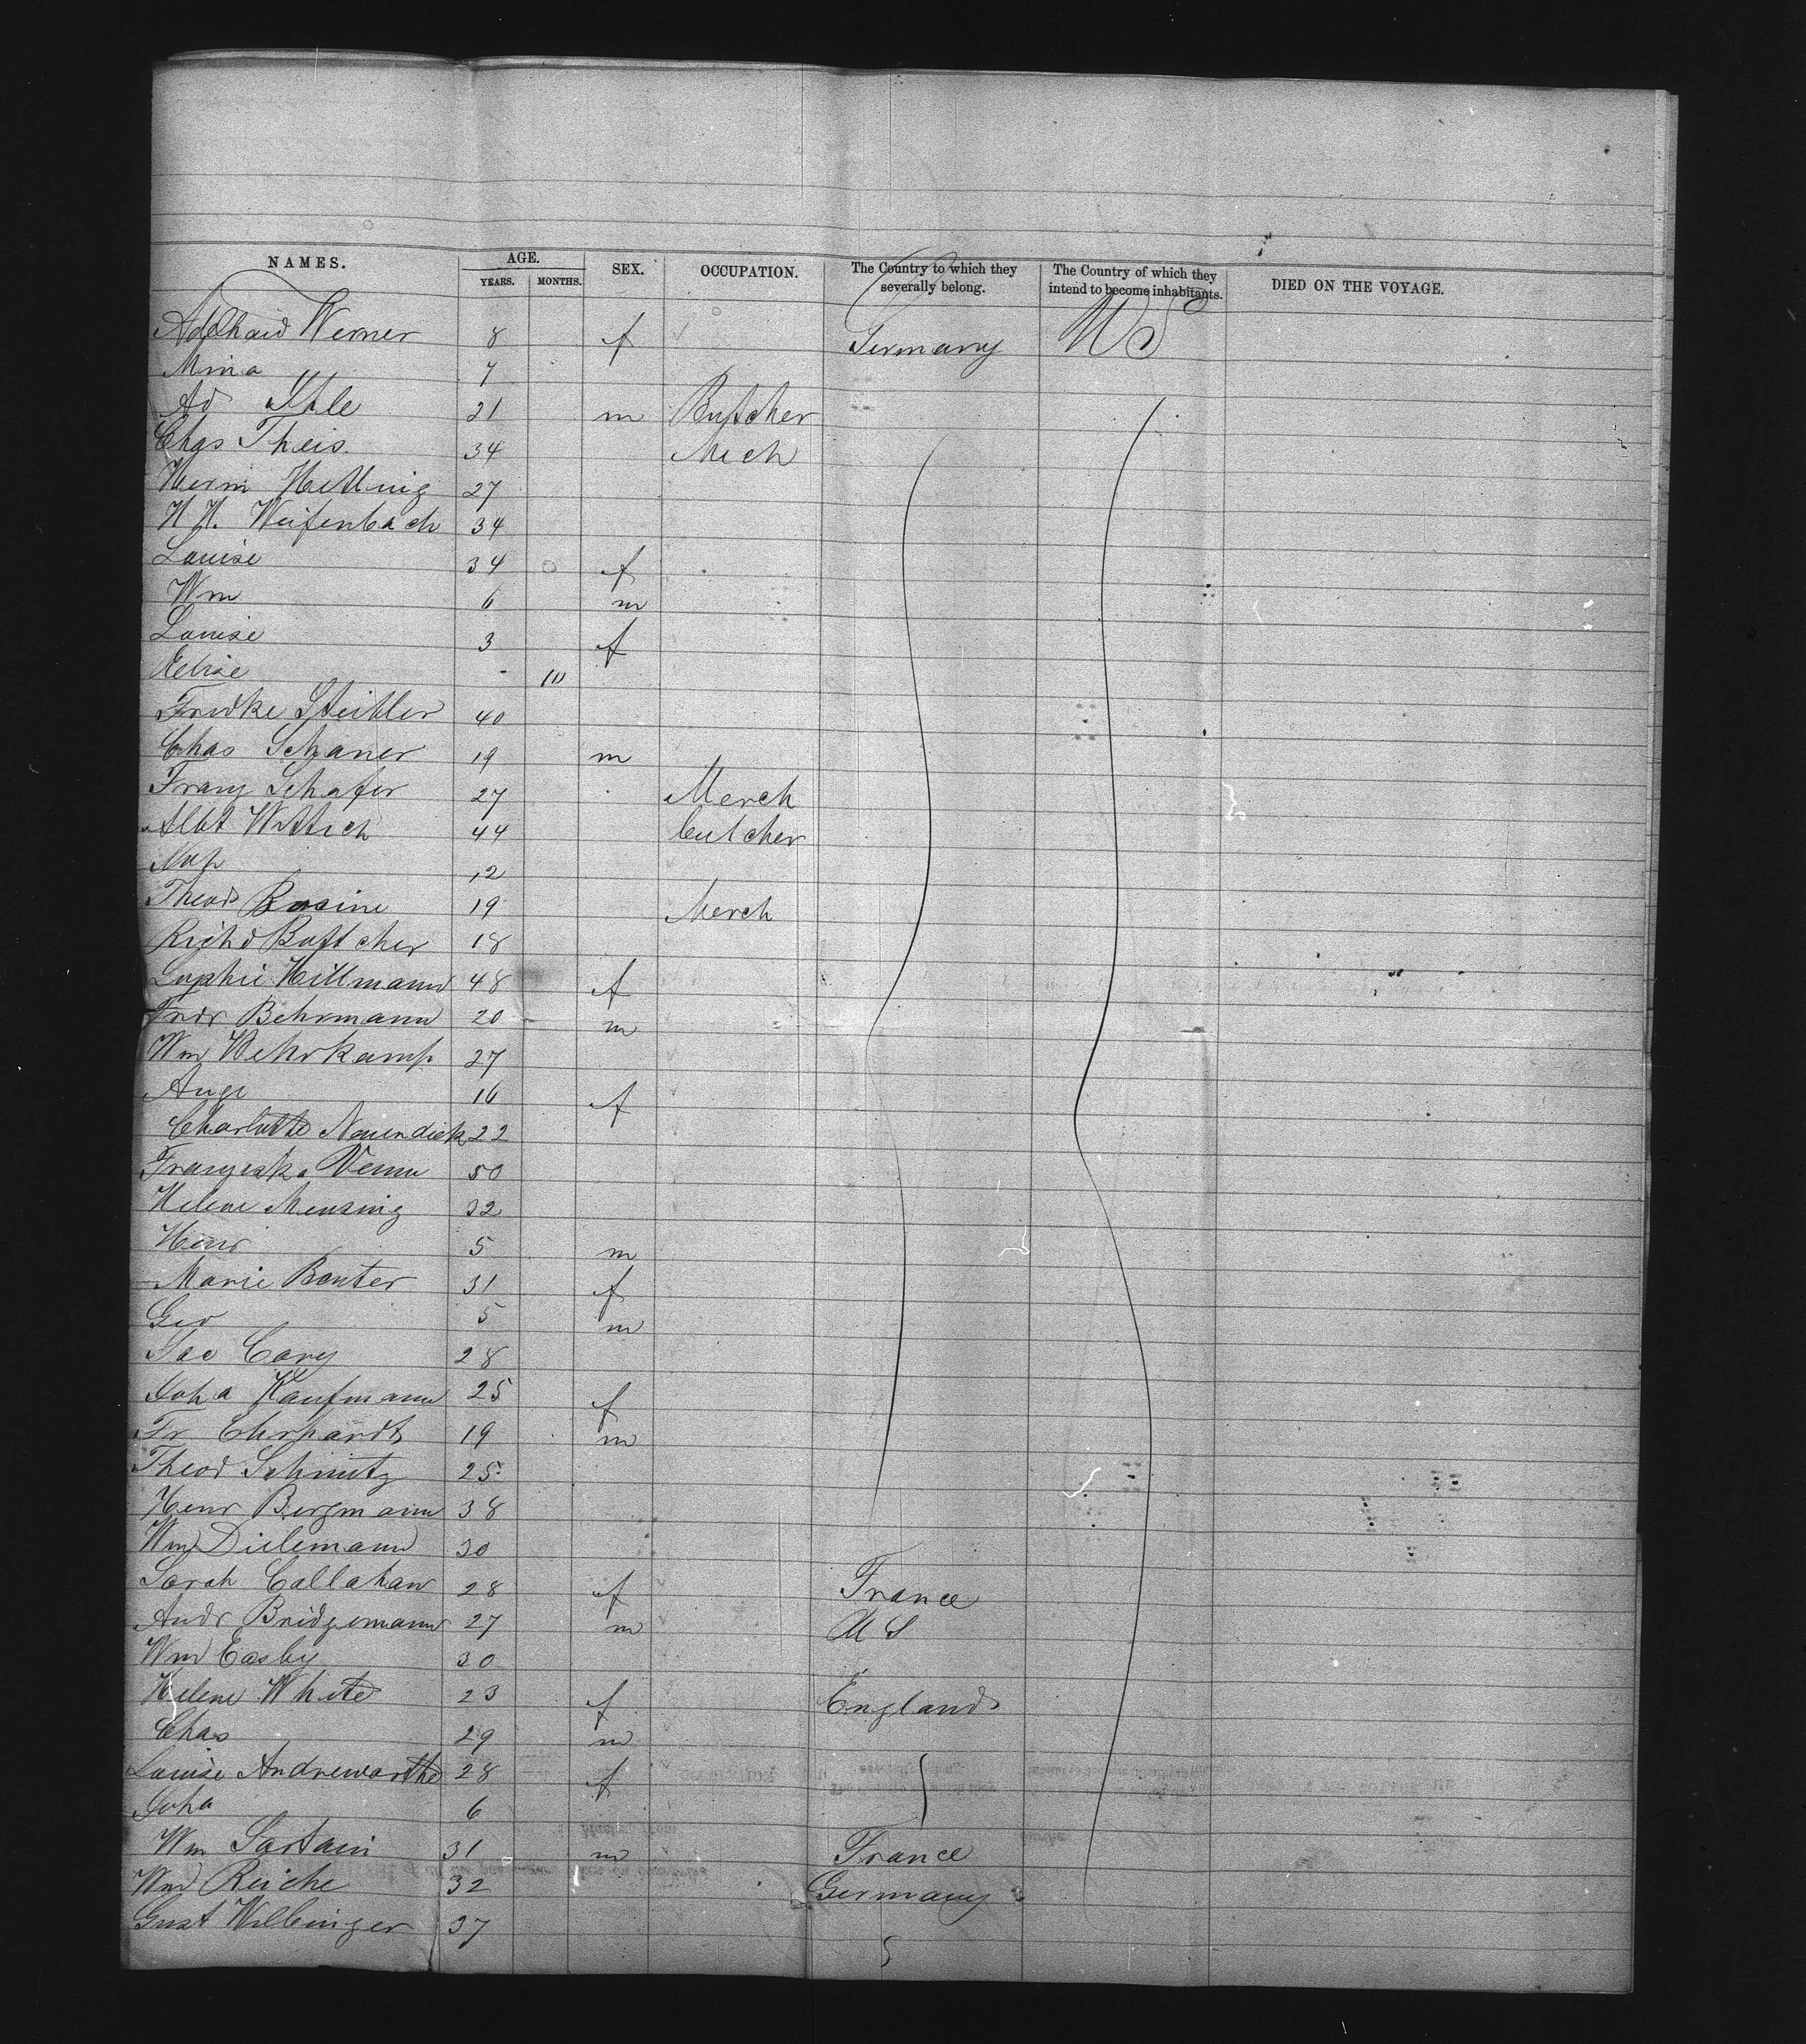 NAMES. AGE. SEX. OCCUPATION. The Country to which they severally belong. The Country of which they intend to become inhabitants. DIED ON THE VOYAGE.
YEARS. MONTHS.
Adelhaid Werner 8 f Germany US
Mina 7
Ad Ihle 21 m Butcher
Chas Theis. 34 Mech
Herm Hettnig 27
H H. Weifenbach 34
Louise 34 f
Wm 6 m
Louise 3 f
Elise - 10
Fredke Steibler 40
Chas Schaner 19 m
Franz Schafer 27 Merch
Albt Wittich 44 butcher
Nap 12
Theod Rosine 19 Merch
Richd Bottcher 18
Sophie Hillmann 48 f
Fredr Behrmann 20 m
Wm Wehrkamp 27
Auge 16 f
Charlotte Nauendiek 22
Franziska Venn 50
Helene Mensing 32
Henr 5 m
Marie Bonter 31 f
Geo 5 m
Jac Cory 28
Joha Kaufmann 25 f
Fr Ehrhardt 19 m
Theod Schmitz 25
Henr Bergmann 38
Wm Dielemann 30
Sarah Callahan 28 f France
Andr Bridgemann 27 m U S
Wm Easby 30
Helene White 23 f England
Chas 29 m
Louise Andrewartha 28 f
Joha 6
Wm Sartain 31 m France
Wm Reiche 32 Germany
Gust Wilbinger 37